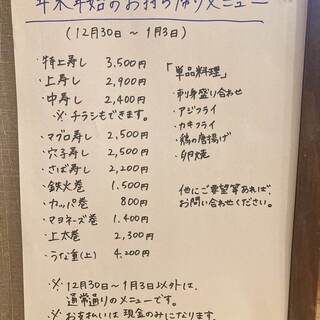 年末年始のお持ち帰りメニュー
(12月30日 ~ 1月3日)
・特上寿し 3,500円
・上寿し 2,900円
・中寿し 2,400円
※チラシもできます。
・マグロ寿し 2,500円
・穴子寿し 2,500円
・さば寿し 2,200円
・鉄火巻 1,500円
・カッパ巻 800円
・マヨネーズ巻 1,400円
・上太巻 2,300円
・うな重(上) 4,200円
「単品料理」
・刺身盛り合わせ
・アジフライ
・カキフライ
・鶏の唐揚げ
・卵焼
他にご要望等あれば、
お問い合わせください。
※ 12月30日~1月3日以外は、
通常通りのメニューです。
※ お支払いは現金のみになります。